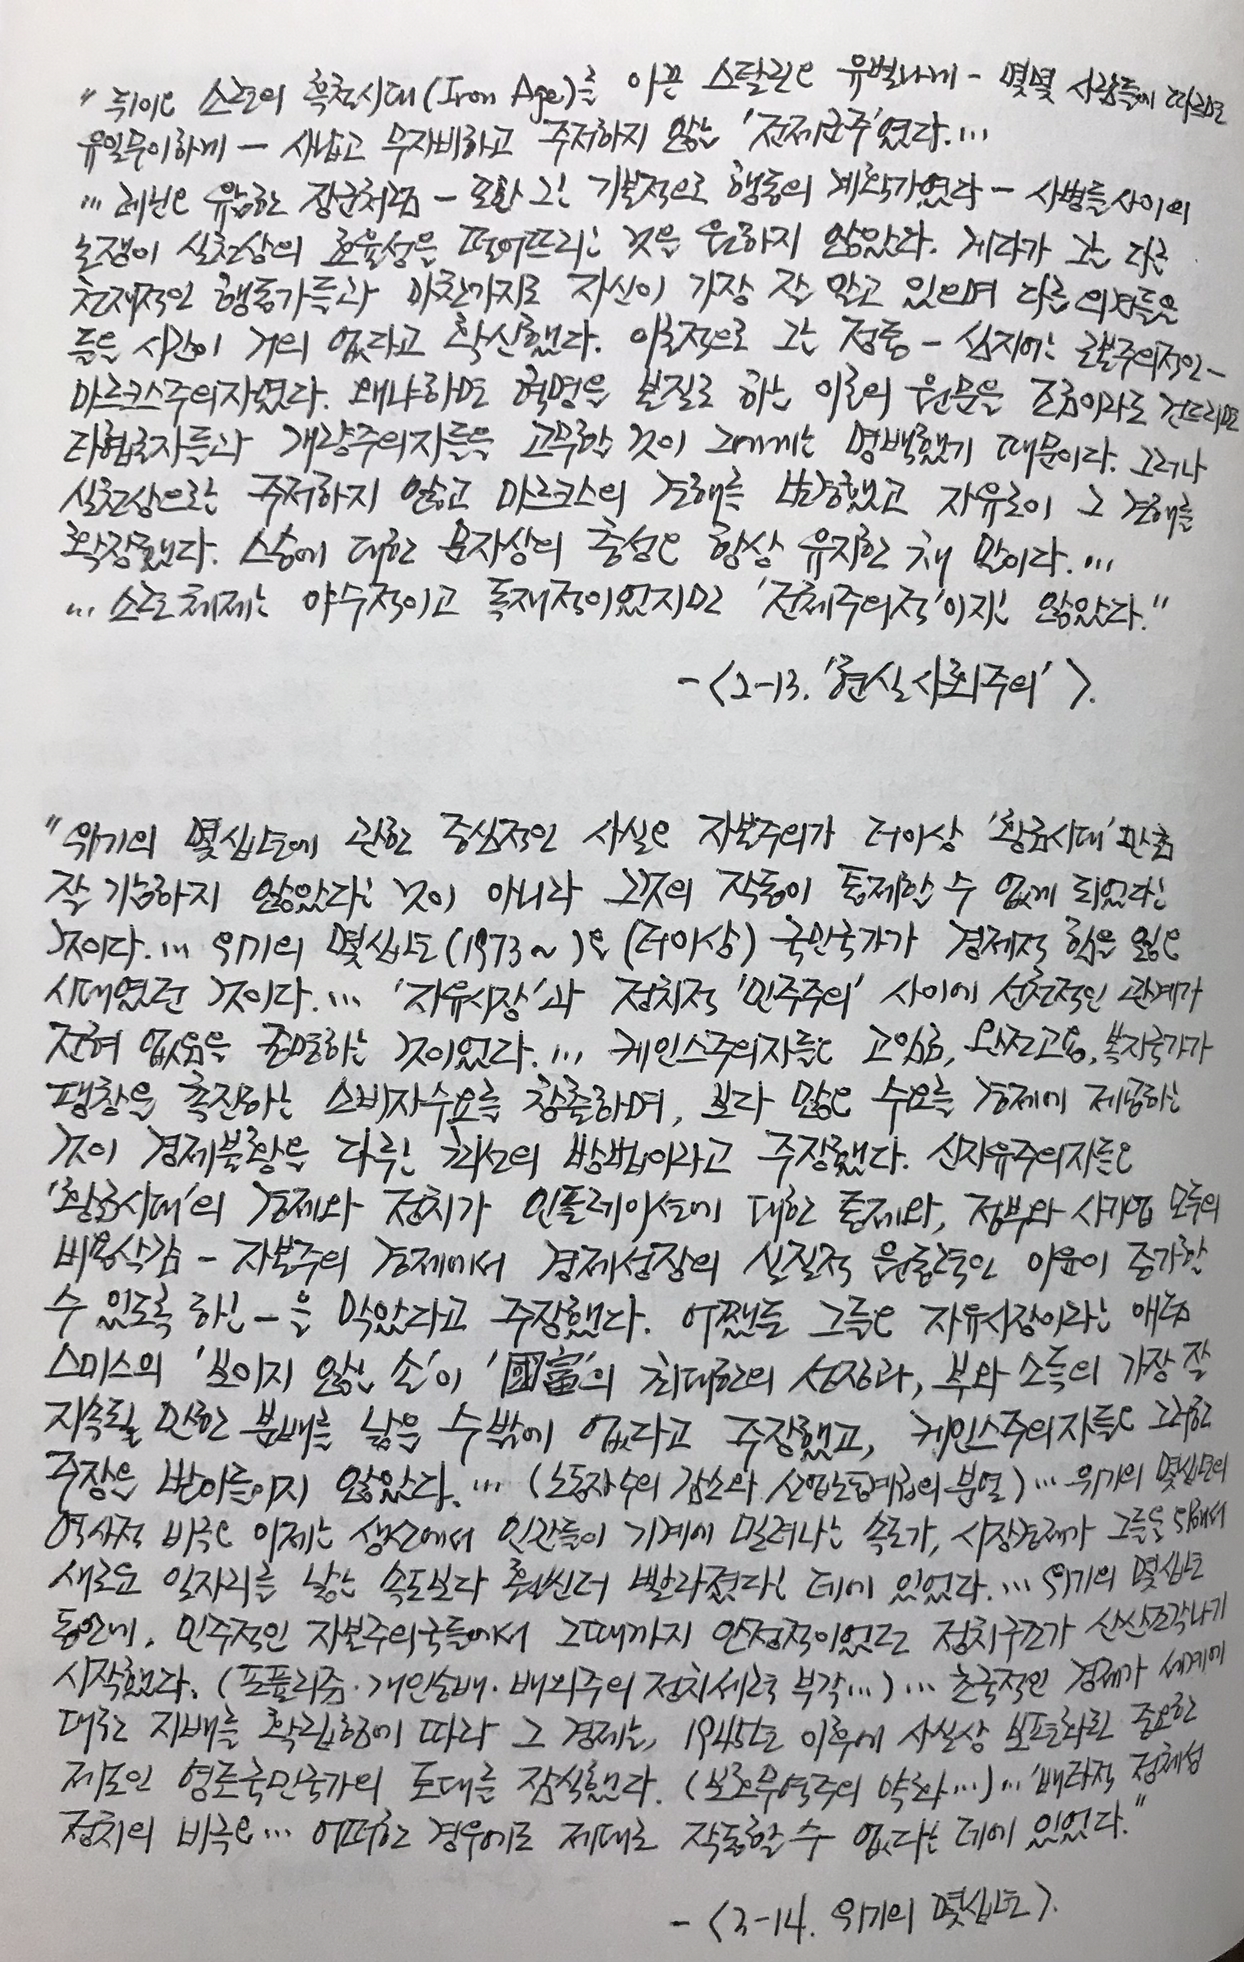 "뒤이은 소련의 흑철시대(Iron Age)를 이끈 스탈린은 유별나게 - 몇몇 사람들에 따르면
유일무이하게 - 사납고 무자비하고 주저하지 않는 '전제군주'였다. …
… 레닌은 유능한 장군처럼 - 또한 그는 기본적으로 행동의 계획가였다 - 사병들 사이의
논쟁이 실천상의 효율성을 떨어뜨리는 것을 원하지 않았다. 게다가 그는 다른
천재적인 행동가들과 마찬가지로 자신이 가장 잘 알고 있으며 다른 의견들을
들을 시간이 거의 없다고 확신했다. 이론적으로 그는 정통 - 심지어는 근본주의적인 -
마르크스주의자였다. 왜냐하면 혁명을 본질로 하는 이론의 원문을 조금이라도 건드리면
타협론자들과 개량주의자들을 고무할 것이 그에게는 명백했기 때문이다. 그러나
실천상으로는 주저하지 않고 마르크스의 견해를 변경했고 자유로이 그 견해를
확장했다. 스승에 대한 문자상의 충성은 항상 유지한 채 말이다. …
… 소련 체제는 야수적이고 독재적이었지만 '전체주의적'이지는 않았다."
- <2-13. '현실사회주의'>.
"위기의 몇십년에 관한 중심적인 사실은 자본주의가 더이상 '황금시대'만큼
잘 기능하지 않았다는 것이 아니라 그것의 작동이 통제할 수 없게 되었다는
것이다. … 위기의 몇십년(1973~)은 (더이상) 국민국가가 경제적 힘을 잃은
시대였던 것이다. … '자유시장'과 정치적 '민주주의' 사이에 선천적인 관계가
전혀 없음을 증명하는 것이었다. … 케인스주의자들은 고임금, 완전고용, 복지국가가
팽창을 촉진하는 소비자수요를 창출하며, 보다 많은 수요를 경제에 제공하는
것이 경제불황을 다루는 최선의 방법이라고 주장했다. 신자유주의자들은
'황금시대'의 경제와 정치가 인플레이션에 대한 통제와, 정부와 사기업 모두의
비용삭감 - 자본주의 경제에서 경제성장의 실질적 원동력인 이윤이 증가할
수 있도록 하는 - 을 막았다고 주장했다. 어쨌든 그들은 자유시장이라는 애덤
스미스의 '보이지 않는 손'이 '國富'의 최대한의 성장과, 부와 소득의 가장 잘
지속될 만한 분배를 낳을 수밖에 없다고 주장했고, 케인스주의자들은 그러한
주장을 받아들이지 않았다. … (노동자수의 감소와 산업노동계급의 분열) … 위기의 몇십년의
역사적 비극은 이제는 생산에서 인간들이 기계에 밀려나는 속도가, 시장경제가 그들을 위해서
새로운 일자리를 낳는 속도보다 훨씬더 빨라졌다는 데에 있었다. … 위기의 몇십년
동안에, 민주적인 자본주의국들에서 그때까지 안정적이었던 정치구조가 산산조각나기
시작했다. (포퓰리즘·개인숭배·배외주의 정치세력 부각…) … 초국적인 경제가 세계에
대한 지배를 확립함에 따라 그 경제는, 1945년 이후에 사실상 보편화된 중요한
제도인 영토국민국가의 토대를 잠식했다. (보호무역주의 약화…) … '배타적 정체성
정치의 비극은 … 어떠한 경우에도 제대로 작동할 수 없다는 데에 있었다."
- <3-14. 위기의 몇십년>.